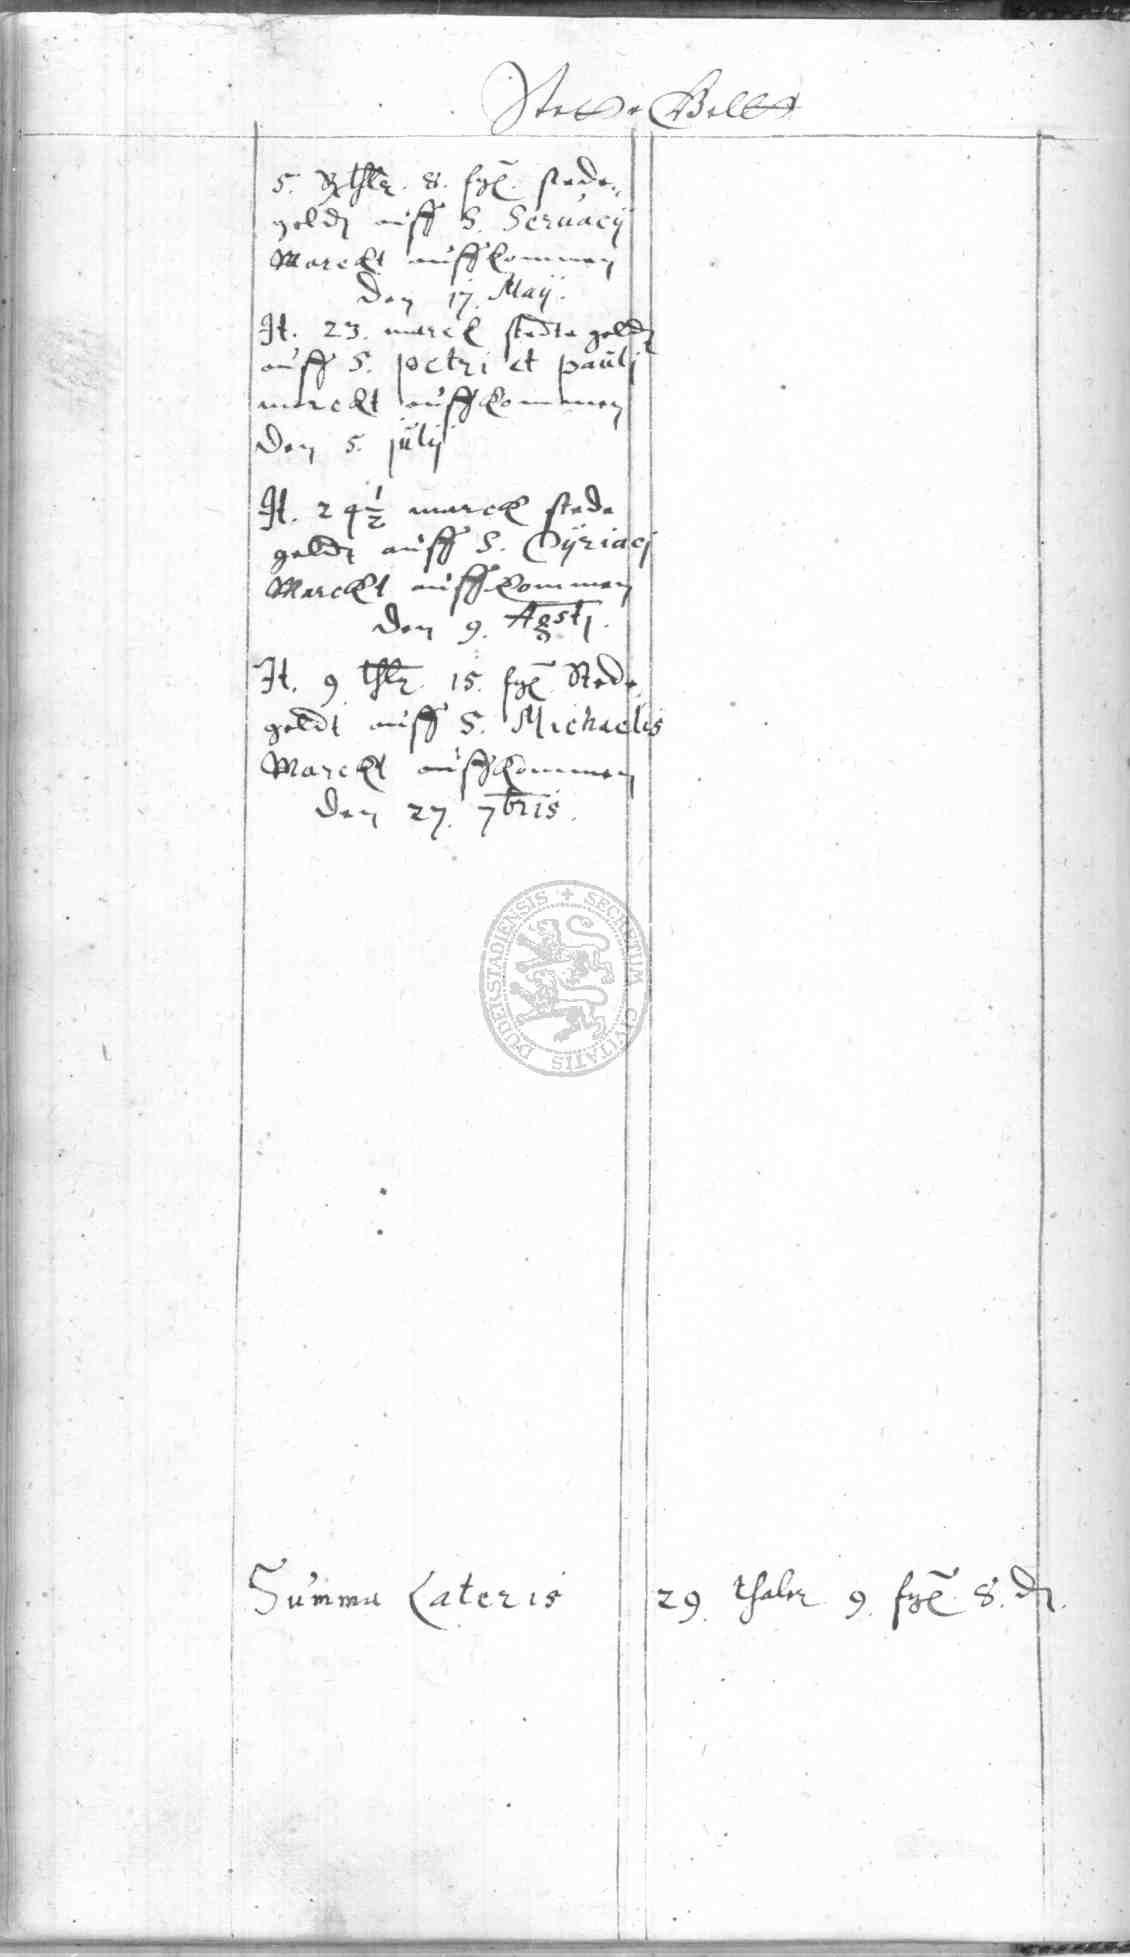 Stede Geldt
5. Rthlr. 8. sgl. stede
geldt auff S. Servacij
Marckt auffkommen
den 17. Maij.
It. 23. marck stede geldt
auff S. petri et paulj
marckt auffkommen
den 5. julij
It. 24 1/2 marck stede
geldt auff S. Cÿriacj
Marckt auffkommen
den 9. Agstj.
It. 9 thlr. 15. sgl. Stede
geldt auff S. Michaelis
Marckt auffkommen
den 27. 7bris.
SECRETUM CIVITATIS DUDERSTADIENSIS
Summa Lateris 29. thaler 9. sgl. 8. d.